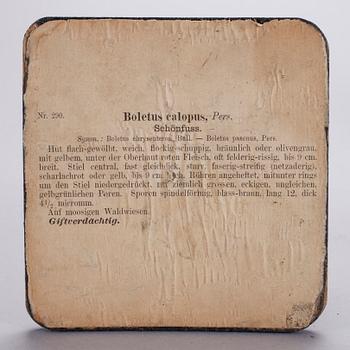 Nr. 290. Boletus calopus, Pers.
Schönfuss.
Synon.: Boletus chrysenteron, Bull. — Boletus pascuus, Pers.
Hut flach-gewölbt, weich, flockig-schuppig, bräunlich oder olivengrau,
mit gelbem, unter der Oberhaut roten Fleisch, oft felderig-rissig, bis 9 cm.
breit. Stiel central, fast gleichdick, starr, faserig-streifig (netzaderig),
scharlachrot oder gelb, bis 9 cm hoch. Röhren angeheftet, mitunter rings
um den Stiel niedergedrückt, mit ziemlich grossen, eckigen, ungleichen,
gelbgrünlichen Poren. Sporen spindelförmig, blass-braun, lang 12, dick
4½ micromm.
Auf moosigen Waldwiesen.
Giftverdächtig.